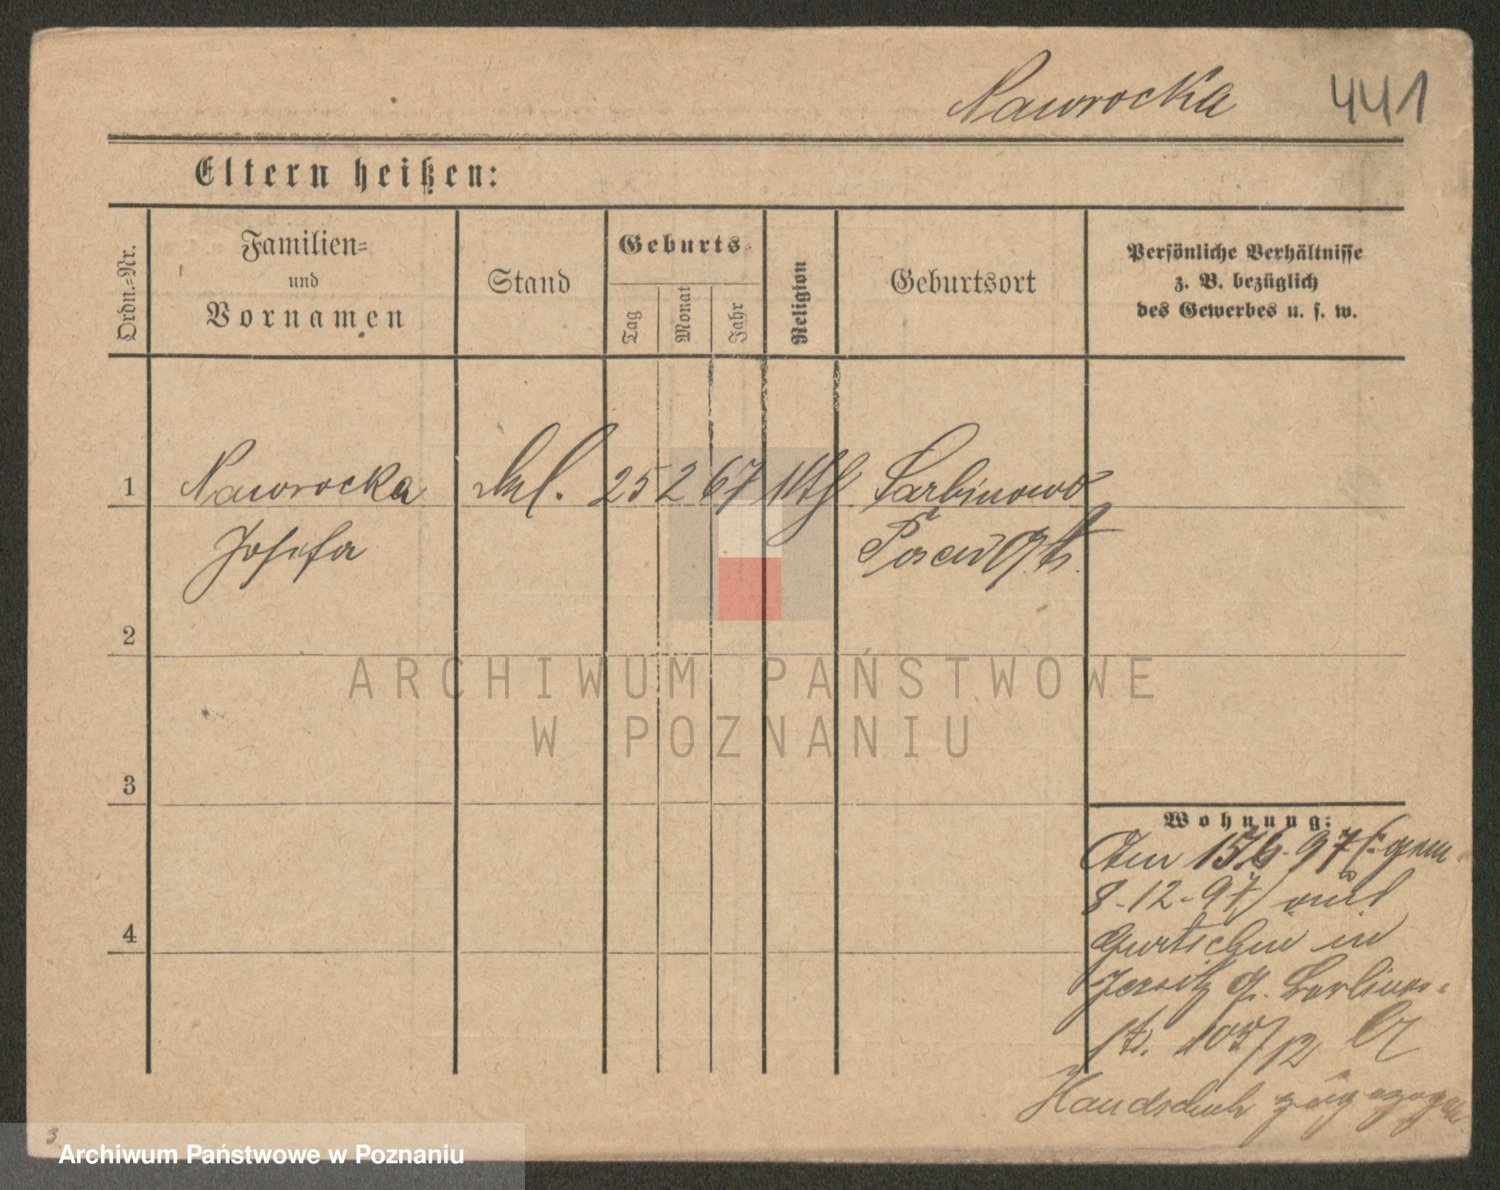 Nawrocka 441
Eltern heißen:
Ordn.-Nr.
Familien-
und
Vornamen
Stand
Geburts-
Tag
Monat
Jahr
Religion
Geburtsort
Persönliche Verhältnisse
z. B. bezüglich
des Gewerbes u. s. w.
1 Nawrocka 25 2 67 Kth. Sarbinowo
Josefa Posen
2
3
4
Wohnung:
Am 15/6. 97 (: gem
8.-12.-97/ aus
Gurtschin in
Jersitz Gr. Berliner-
str. 105/12
Handschuh zugezogen
3
ARCHIWUM PAŃSTWOWE
W POZNANIU
Archiwum Państwowe w Poznaniu